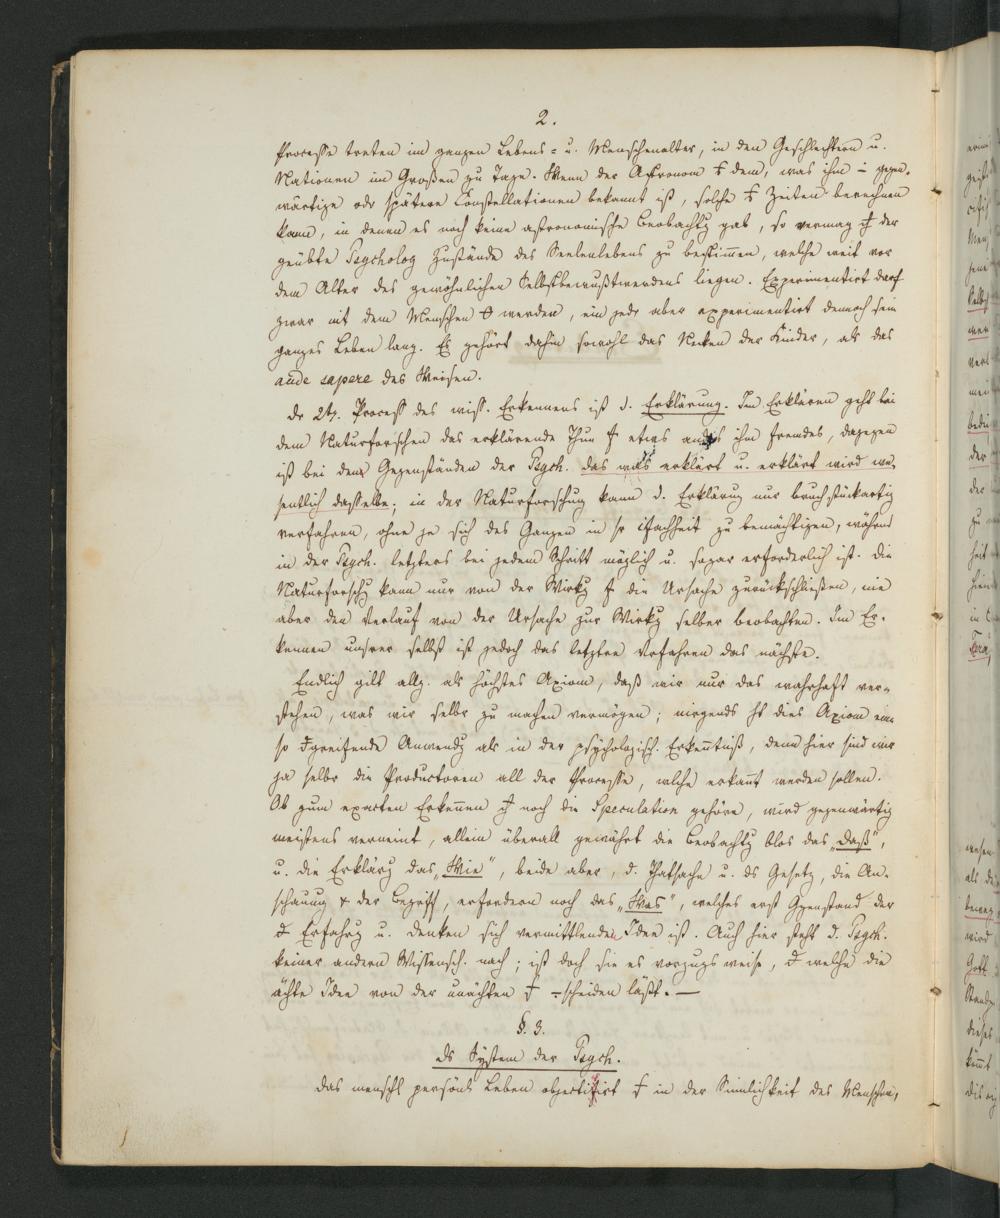 2.
Processe treten im ganzen Lebens= u. Menschenalter, in den Geschlechtern u.
Nationen im Großen zu Tage. Wenn der Astronom dem, was ihm gegen-
wärtige oder spätere Constellationen bekannt ist, solche Zeiten berechnen
kann, in denen es noch keine astronomische Beobachtg gab, so vermag der
geübte Psycholog Zustände des Seelenlebens zu bestimmen, welche weit vor
dem Alter des gewöhnlichen Selbstbewußtwerdens liegen. Experimentirt darf
zwar mit dem Menschen werden, ein jeder aber experimentirt dennoch sein
ganzes Leben lang. Es gehört dahin sowohl das Necken der Kinder, als das
aude sapere des Weisen.
Dr 2tr. Proceß des wiss. Erkennens ist d. Erklärung. Im Erklären geht bei
dem Naturforschen das erklärende Thun etwas ihm fremdes, dagegen
ist bei den Gegenständen der Psych. das was erklärt u. erklärt wird we-
sentlich dasselbe; in der Naturforschung kann d. Erklärug nur bruchstückartig
verfahren, ohne je sich des Ganzen in sr Efachheit zu bemächtigen, während
in der Psych. letzteres bei jedem Schritt möglich u. sogar erforderlich ist. Die
Naturforschg kann nur von der Wirkg die Ursache zurückschließen, nie
aber den Verlauf von der Ursache zur Wirkg selber beobachten. Im Er-
kennen unsrer selbst ist jedoch das letztre Verfahren das nächste.
Endlich gilt allg. als höchstes Axiom, daß wir nur das wahrhaft ver-
stehen, was wir selbr zu machen vermögen; nirgends ht dies Axiom eine
so greifende Anwendg als in der psychologisch. Erkenntniß, denn hier sind wir
ja selbr die Productoren all der Processe, welche erkannt werden sollen.
Ob zum exacten Erkennen noch die Speculation gehöre, wird gegenwärtig
meistens verneint, allein überall gewährt die Beobachtg blos das „Daß",
u. die Erklärg das „Wie", beide aber, d. Thatsache u. ds Gesetz, die An-
schauung & der Begriff, erfordern noch das „Was", welches erst Ggenstand der
Erfahrg u. Denken sich vermittlenden Idee ist. Auch hier steht d. Psych.
keiner andern Wissensch. nach; ist doch sie es vorzugsweise, welche die
ächte Idee von der unächten scheiden läßt. —
§. 3.
ds System der Psych.
Das menschl persönl Leben objectivirt in der Sinnlichkeit des Menschen,